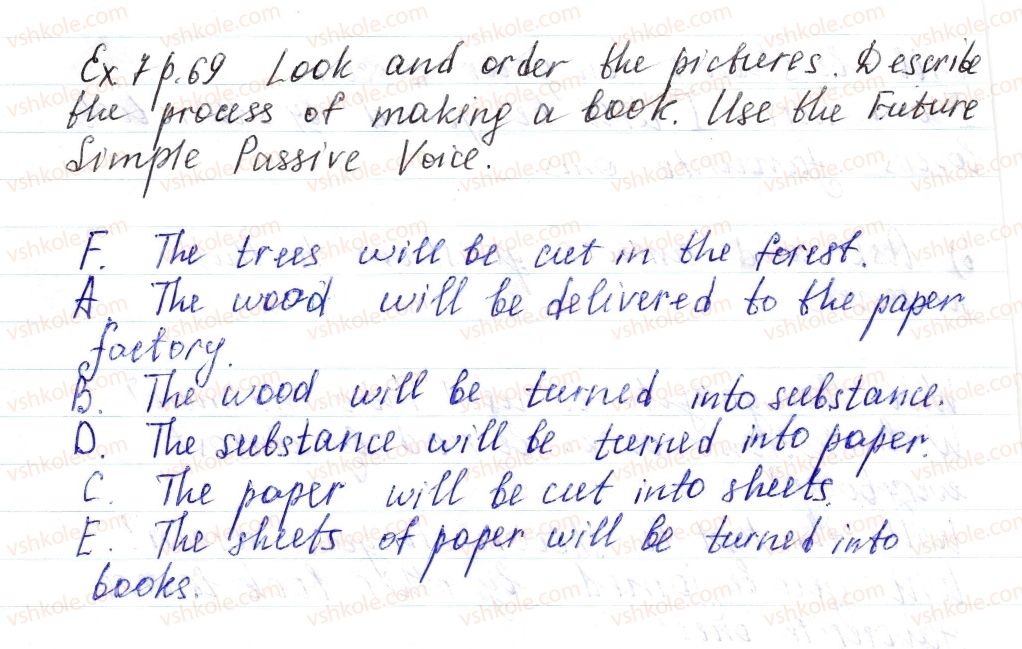 Ex 7 p.69 Look and order the pictures. Describe
the process of making a book. Use the Future
Simple Passive Voice.
F. The trees will be cut in the forest.
A. The wood will be delivered to the paper
factory.
B. The wood will be turned into substance.
D. The substance will be turned into paper.
C. The paper will be cut into sheets.
E. The sheets of paper will be turned into
books.